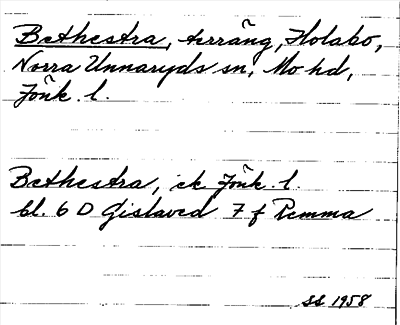 Bethestra, terräng, Holabo,
Norra Unnaryds sn, Mo hd,
Jönk. l.
Bethestra, ek Jönk. l.
bl. 6 D Gislaved 7 f Remma
SS 1958